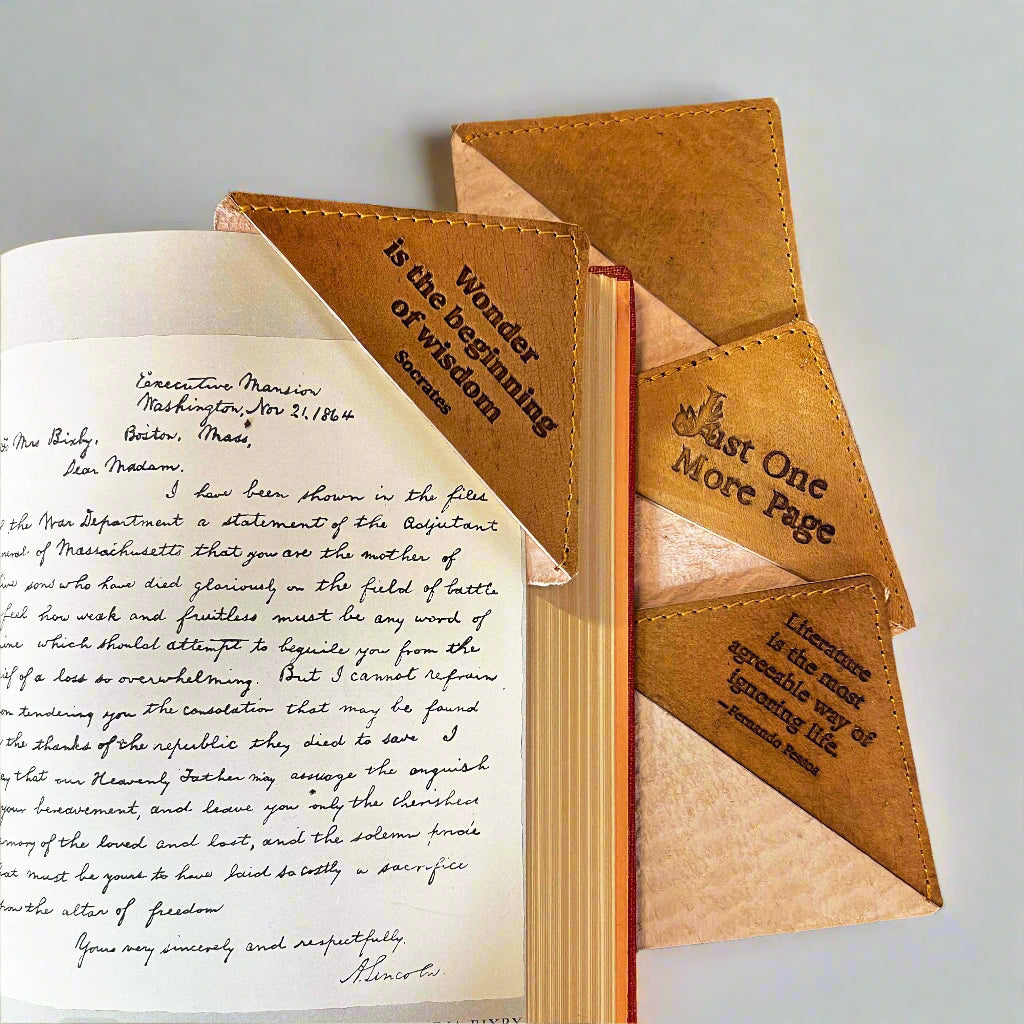 Wonder
is the beginning
of wisdom
Socrates
Just One
More Page
Literature
is the most
agreeable way of
ignoring life.
—Fernando Pessoa
Executive Mansion
Washington, Nov 21, 1864
Mrs Bixby, Boston, Mass,
Dear Madam.
I have been shown in the files
the War Department a statement of the Adjutant
of Massachusetts that you are the mother of
sons who have died gloriously on the field of battle
feel how weak and fruitless must be any word of
which should attempt to beguile you from the
of a loss so overwhelming. But I cannot refrain
tendering you the consolation that may be found
the thanks of the republic they died to save I
that our Heavenly Father may assuage the anguish
your bereavement, and leave you only the cherished
of the loved and lost, and the solemn pride
must be yours to have laid so costly a sacrifice
the altar of freedom
Yours very sincerely and respectfully.
A. Lincoln.
BIXBY